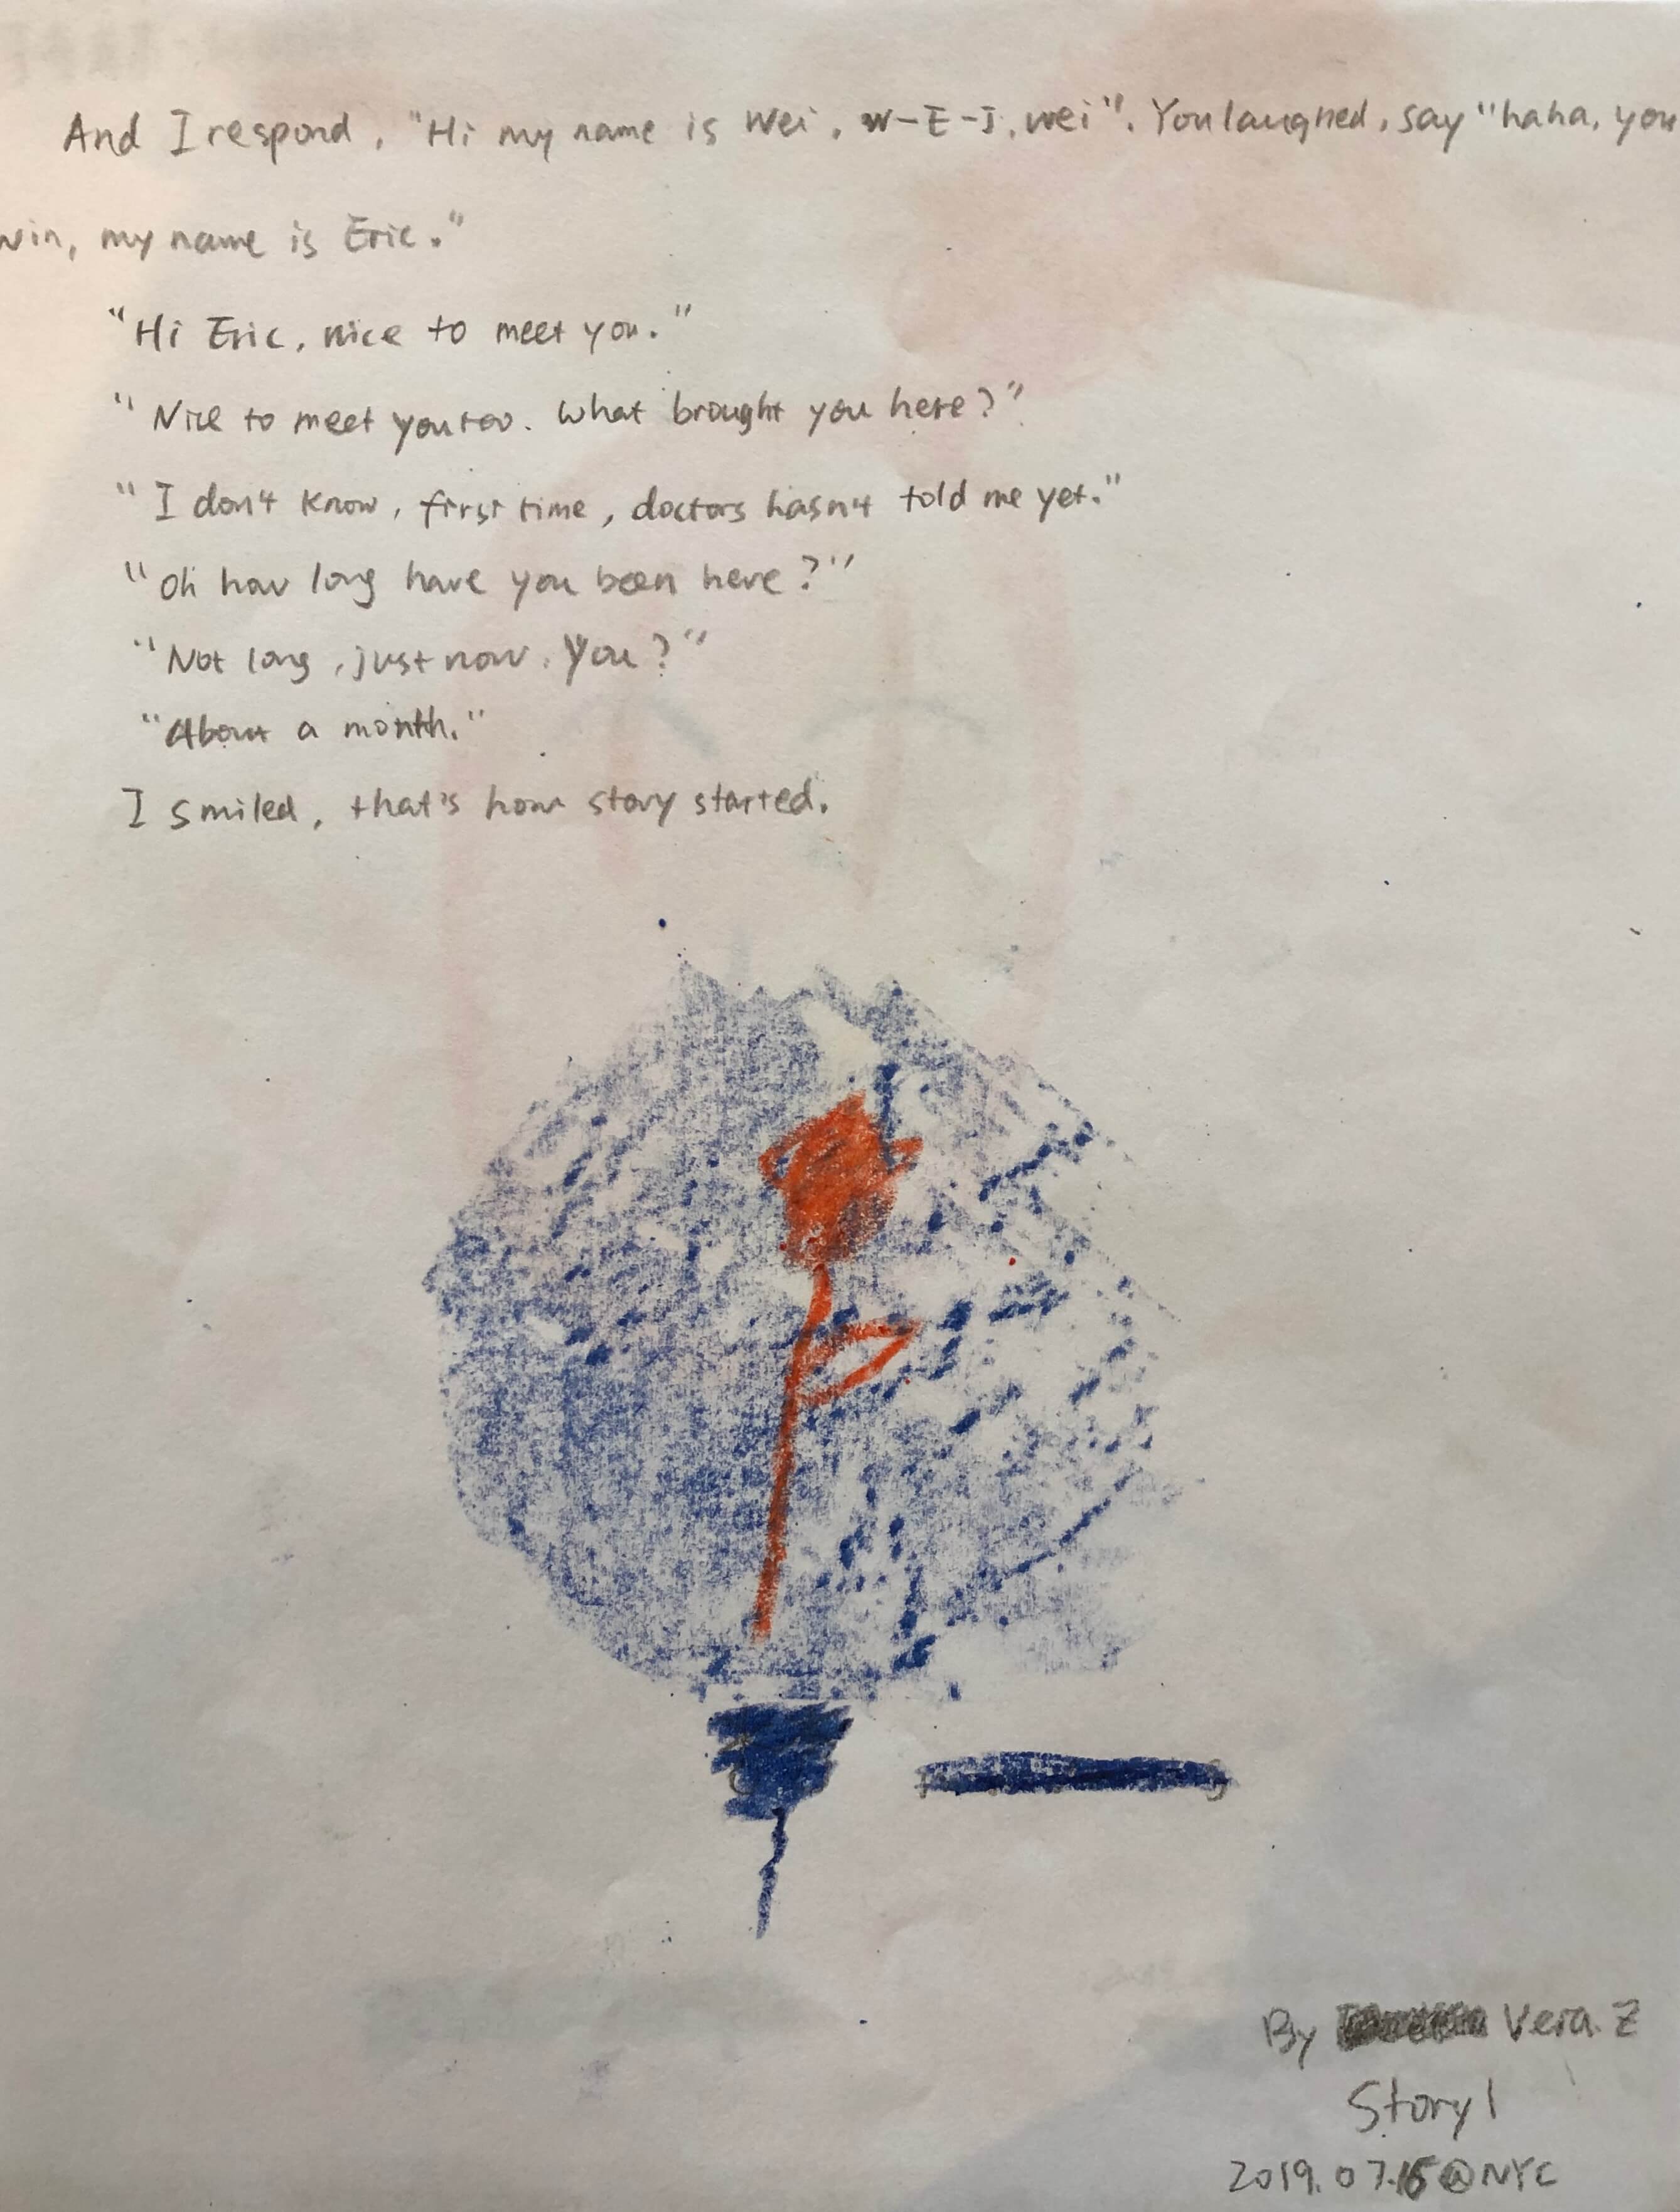 And I respond, "Hi my name is Wei, W-E-I, wei". You laughed, say "haha, you
win, my name is Eric."
"Hi Eric, nice to meet you."
"Nice to meet you too. What brought you here?"
"I don't know, first time, doctors hasn't told me yet."
"Oh how long have you been here?"
"Not long, just now. You?"
"About a month."
I smiled, that's how story started.
By Vera. Z
Story 1
2019.07.15@NYC